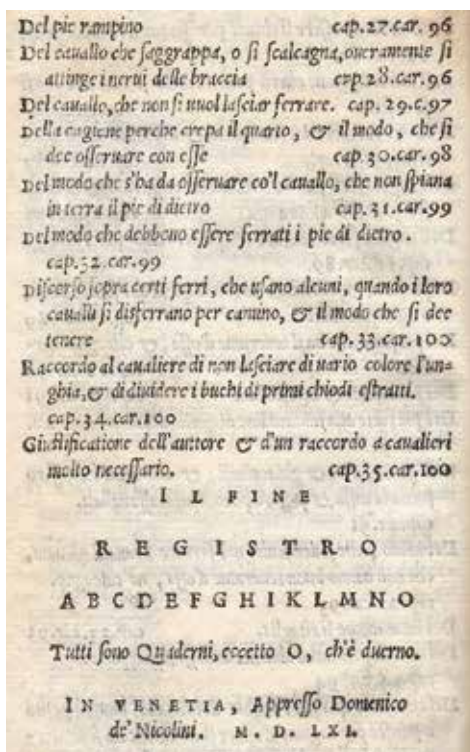 Del pie rampino cap.27.car. 96
Del cauallo che s'aggrappa, o si scalcagna, oueramente si
attinge i nerui delle braccia cap.28.car.96
Del cauallo, che non si uuol lasciar ferrare. cap. 29.c.97
Della cagione perche crepa il quarto, & il modo, che si
dee osseruare con esse cap.30.car.98
Del modo che s'ha da osseruare co'l cauallo, che non spiana
in terra il pie di dietro cap.31.car.99
Del modo che debbono essere ferrati i pie di dietro.
cap.32.car.99
Discorso sopra certi ferri, che usano alcuni, quando i loro
caualli si disferrano per camino, & il modo che si dee
tenere cap. 33.car.100
Raccordo al caualiere di non lasciare di uario colore l'un-
ghia, & di diuidere i buchi di primi chiodi estratti.
cap.34.car.100
Giustificatione dell'auttore & d'un raccordo a caualieri
molto necessario. cap.35.car.100
IL FINE
REGISTRO
A B C D E F G H I K L M N O
Tutti sono Quaderni, eccetto O, ch'è duerno.
IN VENETIA, Appresso Domenico
de' Nicolini. M. D. LXI.